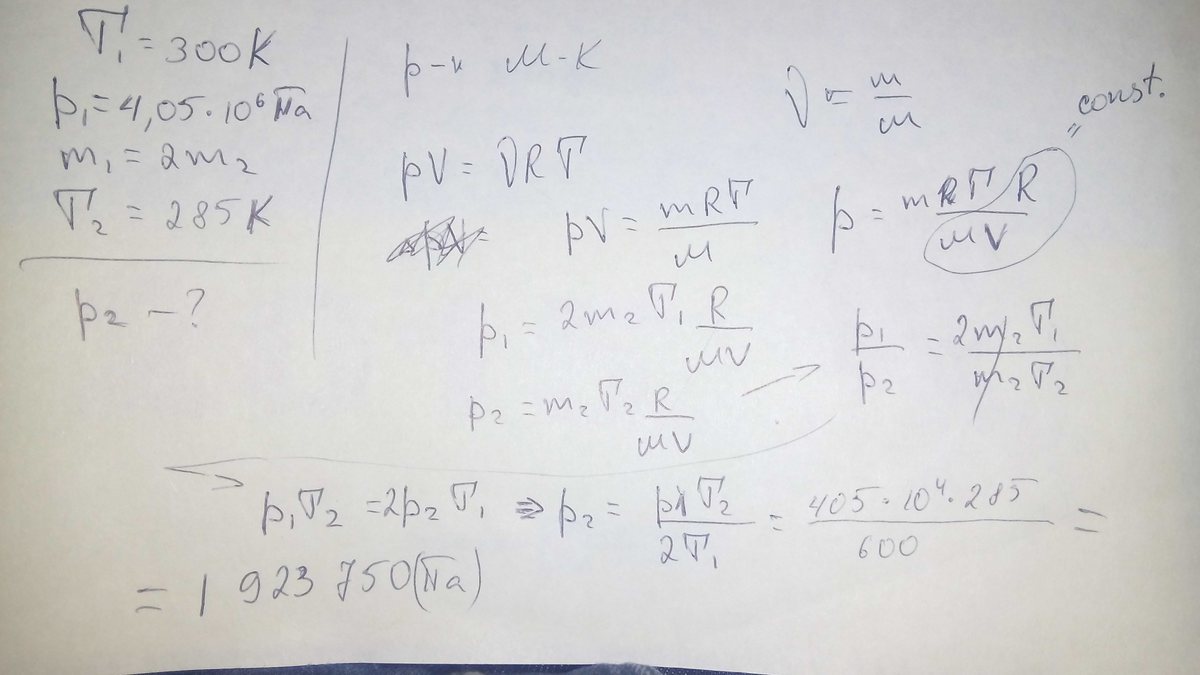 T₁ = 300K
p₁ = 4,05·10⁶ Па
m₁ = 2m₂
T₂ = 285K
p₂ - ?
р-е М-К
ν = m/M
pV = νRT
pV = mRT/M
p = mT R/MV = const.
p₁ = 2m₂ T₁ R/MV
p₂ = m₂ T₂ R/MV
p₁/p₂ = 2m₂T₁/m₂T₂
p₁T₂ = 2p₂T₁ ⇒ p₂ = p₁T₂/2T₁ = 405·10⁴·285/600 =
= 1 923 750(Па)